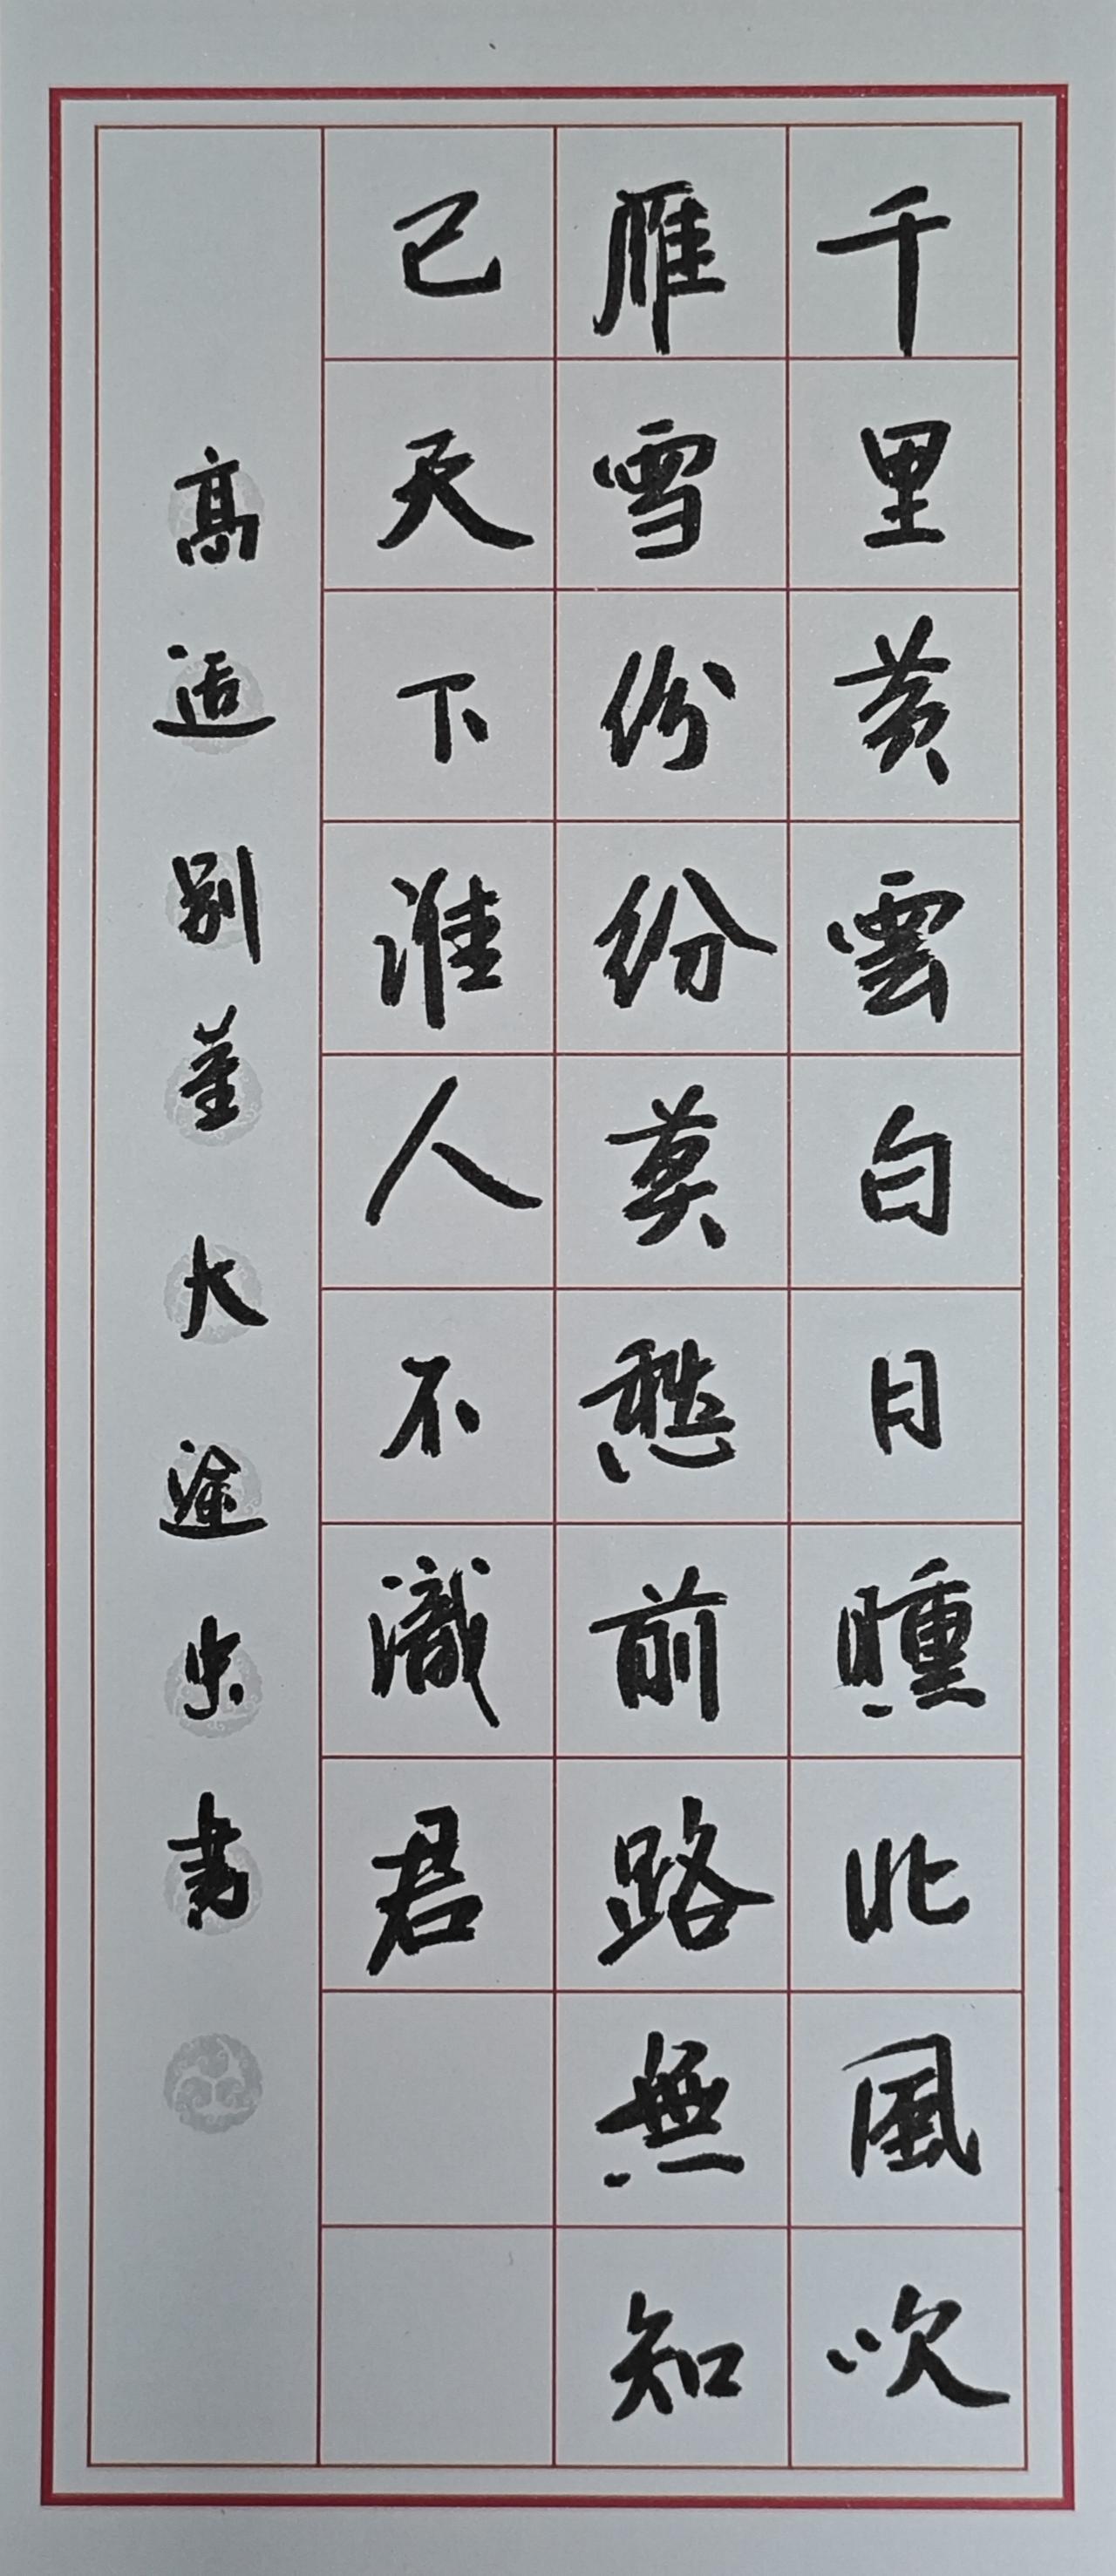 千里黄雲白日曛北風吹
雁雪紛紛莫愁前路無知
己天下誰人不識君
高适别董大途書